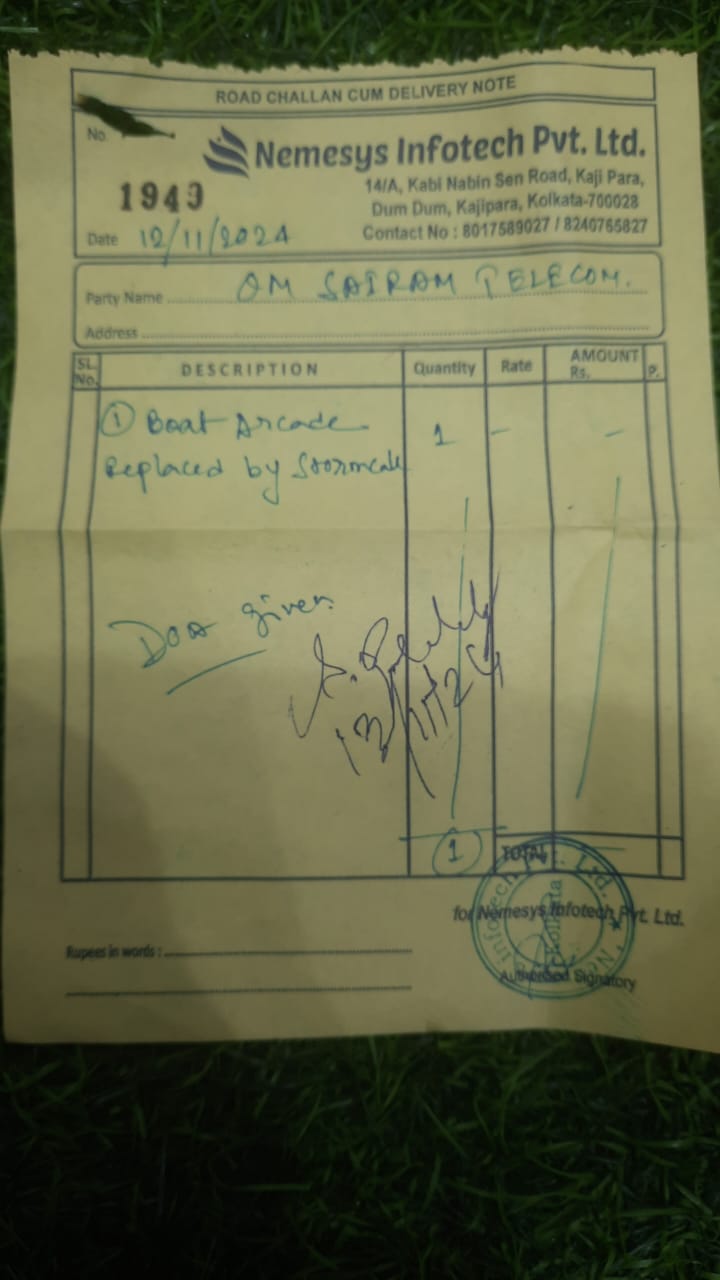 ROAD CHALLAN CUM DELIVERY NOTE
No.
Nemesys Infotech Pvt. Ltd.
1949
14/A, Kabi Nabin Sen Road, Kaji Para,
Dum Dum, Kajipara, Kolkata-700028
Contact No : 8017589027 / 8240765827
Date 12/11/2024
Party Name OM SAIRAM TELECOM.
Address
SL. No. DESCRIPTION Quantity Rate AMOUNT Rs. P.
① Boat Arcade 1 - -
Replaced by Stormcall
DOA given
13/11/24
① TOTAL :
for Nemesys Infotech Pvt. Ltd.
Rupees in words :
Authorised Signatory